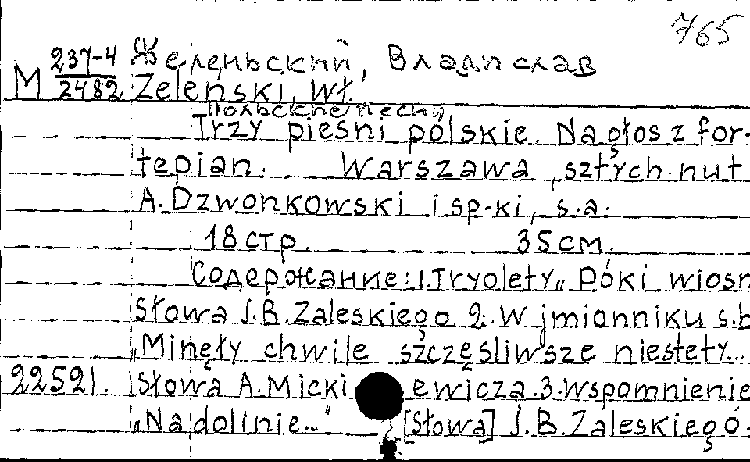 765
237-4 Желеньский, Владислав
М 2482 Żeleński, Wł.
Польские песни
Trzy pieśni polskie. Na głos z for-
tepian. Warszawa, sztych nut
A. Dzwonkowski i sp-ki, s.a.
18 стр. 35 см.
Содержание: 1. Tryolety „Póki wiosn
Słowa J.B. Zaleskiego 2. W jmionniku s.b
„Minęły chwile szczęśliwsze niestety...
22521. Słowa A. Mickiewicza. 3. Wspomnienie
„Na dolinie..." [Słowa] J.B. Zaleskiego.